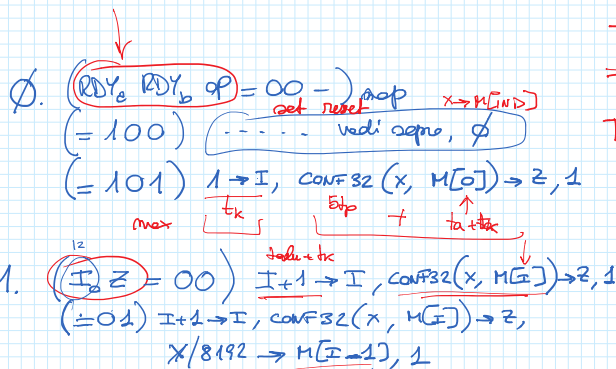 0. (RDYc RDYb OP = 00 -) nop
set reset X→M[IND]
(= 100) ...... vedi sopra, 0
(= 101) 1 → I, CONF32 (X, M[0]) → Z, 1
max tk 5tp + ta+tk
12
talu+tk
1. (I₀ Z = 00) I+1 → I, CONF32(X, M[I]) → Z, 1
(= 01) I+1 → I, CONF32(X, M[I]) → Z,
X/8192 → M[I-1], 1